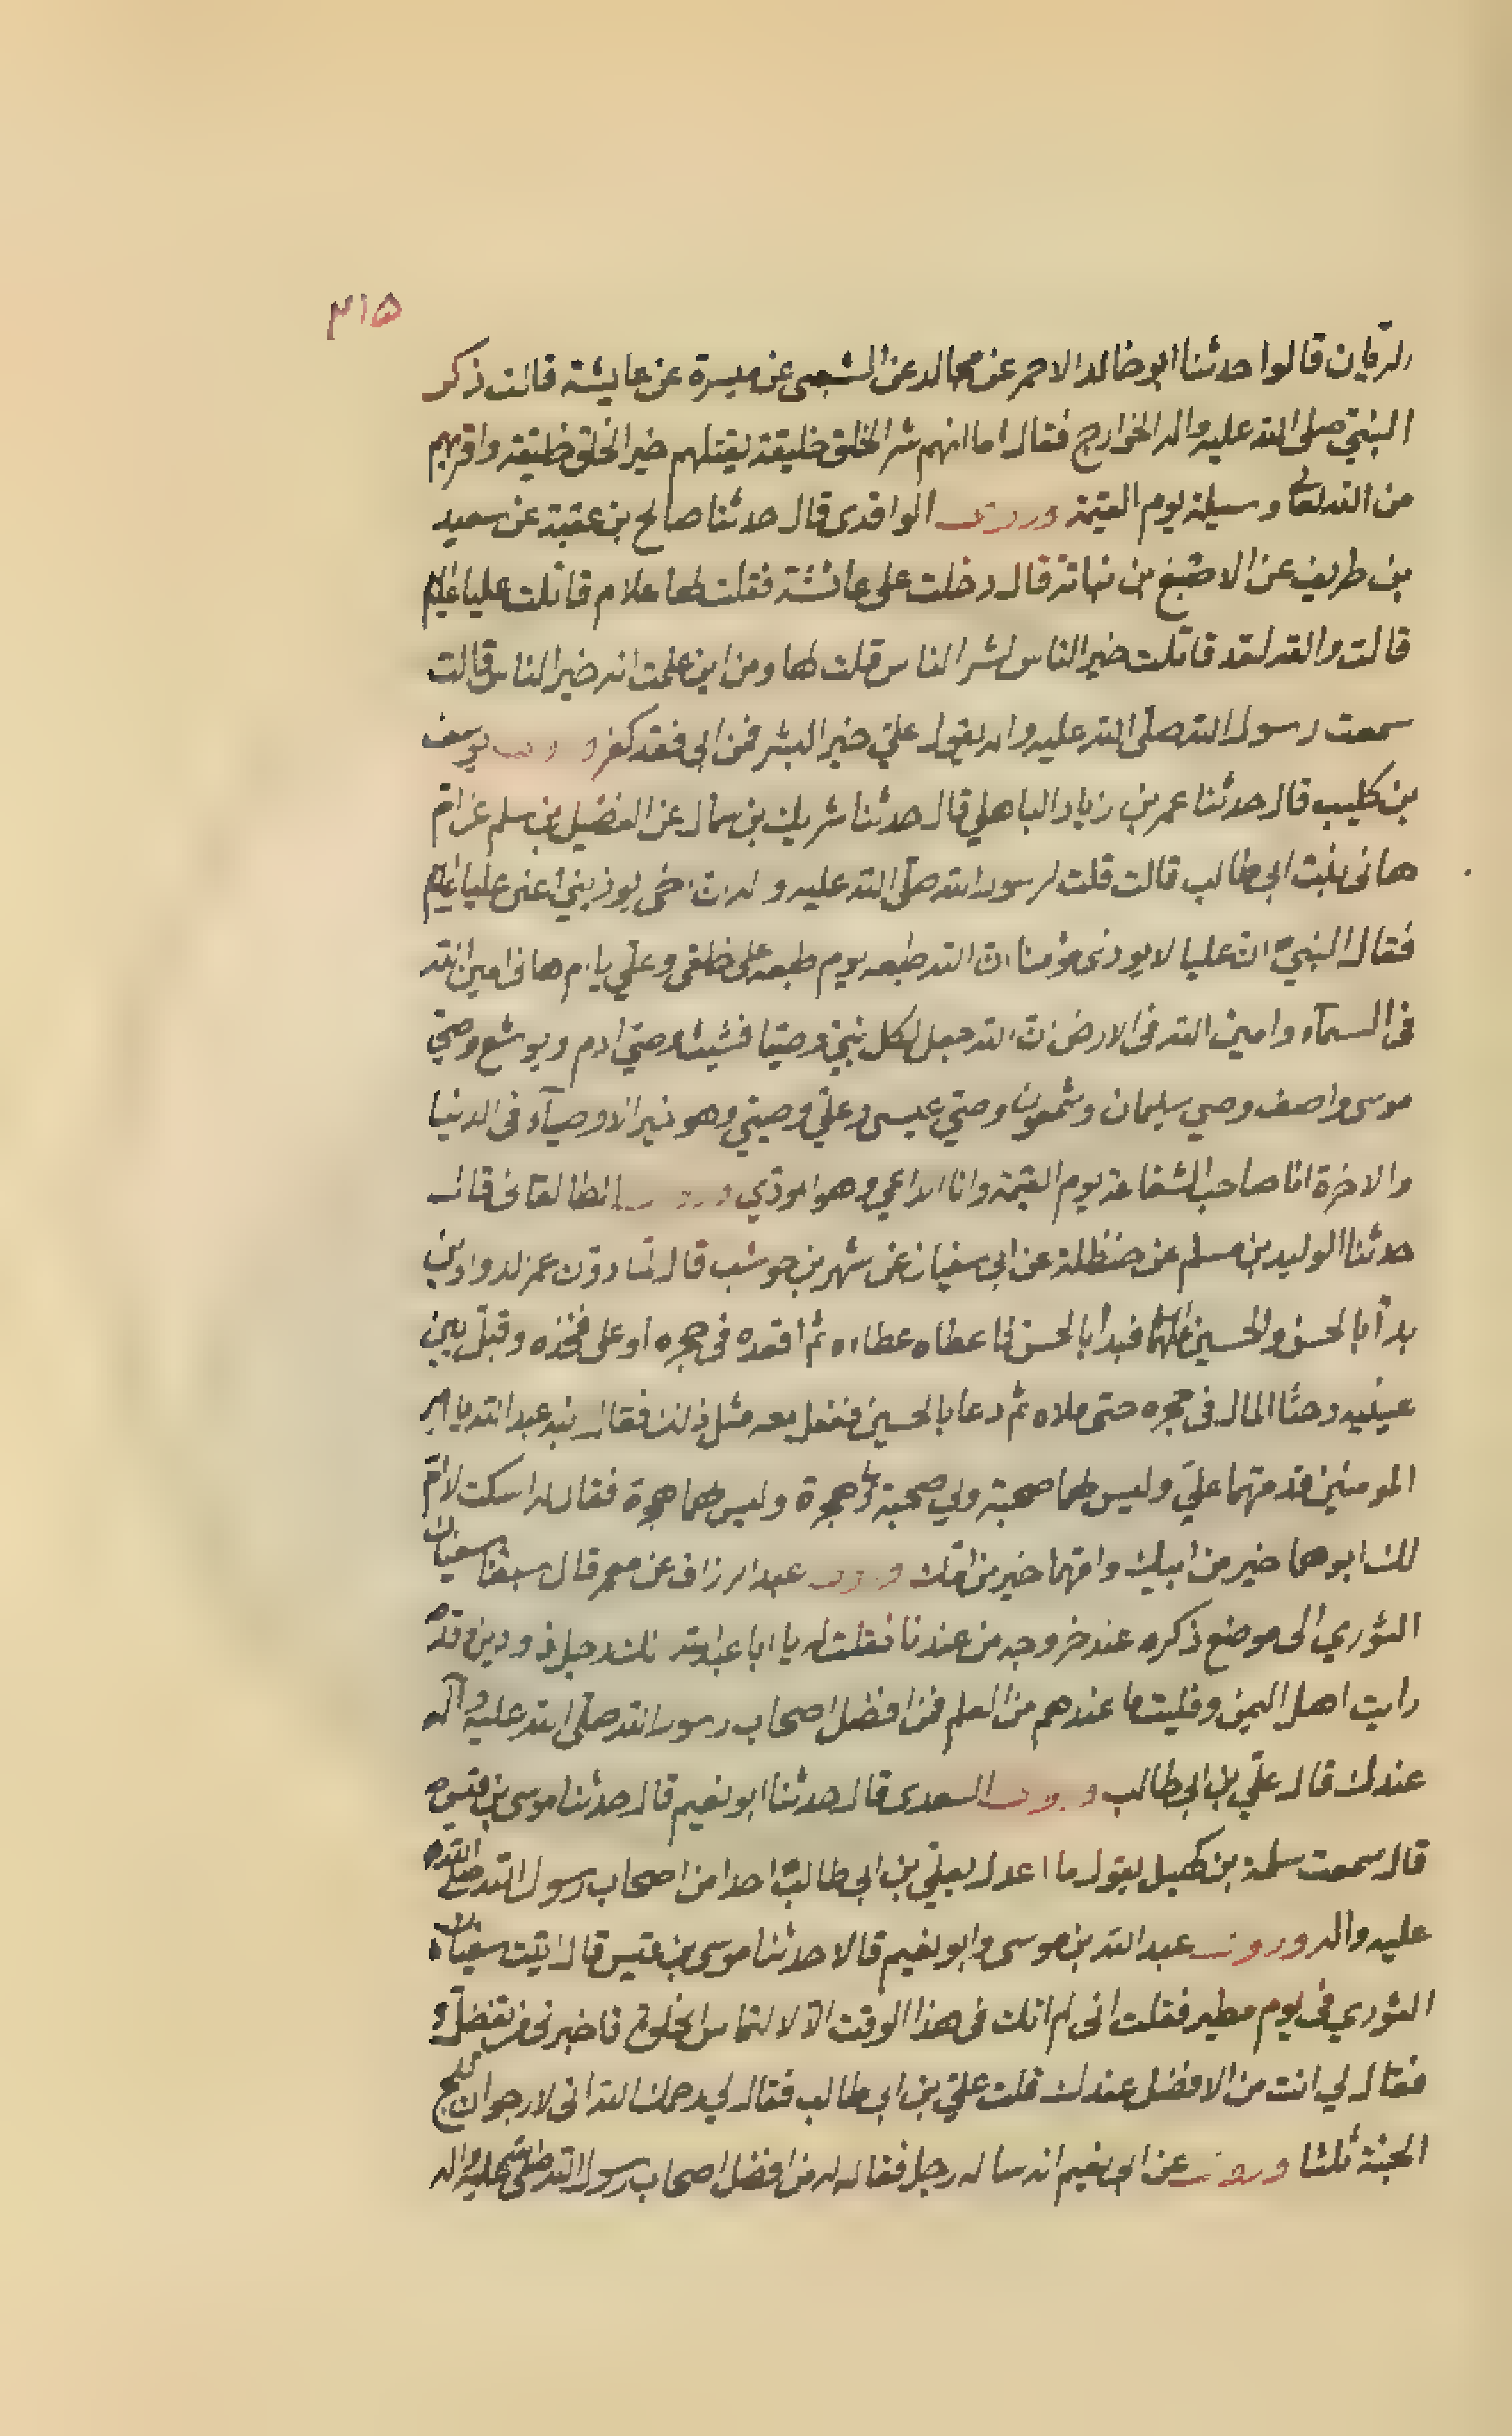 ٣١٥
قالوا حدثنا ابو خالد الاحمر عن مجالد عن الشعبى عن ميسرة عن عايشة قالت ذكر
النبيّ صلى الله عليه واله الخوارج فقال اما انهم شر الخلق خليقة يقتلهم خير الخلق خليقة واقربهم
من الله تعالى وسيلة يوم القيمة وروى الواقدى قال حدثنا صالح بن عقبة عن سعيد
بن طريف عن الاصبغ بن نباتة قال دخلت على عائشة فقلت لها علام قاتلت عليا
قالت والله لقد قاتلت خير الناس لشر الناس قلت لها ومن اين علمت انه خير الناس قالت
سمعت رسول الله صلى الله عليه واله يقول عليّ خير البشر فمن ابى فقد كفر يوسف
بن كليب قال حدثنا عمر بن زياد الباهلي قال حدثنا شريك بن سمال عن الفضيل بن سلم عن امّ
هانى بنت ابى طالب قالت قلت لرسول الله صلّى الله عليه واله انّ اخى يوذيني اعنى عليا
فقال النبيّ انّ عليا لا يوذى مؤمنا انّ الله طبعه يوم طبعه على خلقى وعليّ يا امّ هانى امين الله
فى السمآء وامين الله فى الارض انّ الله جعل لكل نبيّ وصيّا فشيث وصيّ ادم ويوشع وصيّ
موسى واصف وصي سليمان وشمعون وصيّ عيسى وعليّ وصيّي وهو خير الاوصيآء فى الدنيا
والاخرة انا صاحب الشفاعة يوم القيمة وانا الداعي وهو المؤدّي الطالقانى قال
حدثنا الوليد بن مسلم عن حنظلة عن ابى سفيان عن شهر بن حوشب قال لمّا دوّن عمر الدواوين
بدأ بالحسن والحسين فبدأ بالحسن فاعطاه عطاءه ثم اقعده فى حجره او على فخذه وقبّل بين
عينيه وحثا المال فى حجره حتى ملاه ثم دعا بالحسين ففعل معه مثل ذلك فقال ابنه عبد الله يا امير
المومنين قدّمتهما عليّ وليس لهما صحبة ولي صحبة ولى هجرة وليس لهما هجرة فقال له اسكت لا امّ
لك ابوهما خير من ابيك وامّهما خير من امّك وروى عبد الرزاق عن معمر قال سفيان
الثوري الى موضع ذكره عند خروجه من عندنا فقلت له يا ابا عبد الله رجل ذو دين وقد
رايت اهل اليمن وفليت ما عندهم من العلم فمن افضل اصحاب رسول الله صلّى الله عليه وآله
عندك قال عليّ بن ابى طالب وروى السعدى قال حدثنا ابو نعيم قال حدثنا موسى بن قيس
قال سمعت سلمة بن كهيل يقول ما اعدل بعليّ بن ابى طالب احدا من اصحاب رسول الله صلى الله
عليه واله وروى عبد الله بن موسى وابو نعيم قالا حدثنا موسى بن قيس قال اتيت سفيان
الثوري فى يوم مطير فقلت انى لم اتك فى هذا الوقت الا لالتماس الخلوة فاخبرنى من تفضل
فقال لي انت من الافضل عندك قلت عليّ بن ابى طالب فقال لي يرحمك الله انى لارجو ان تلج
الجنة ثلثا وروى عن ابى نعيم انه ساله رجل فقال له من افضل اصحاب رسول الله صلى الله عليه واله